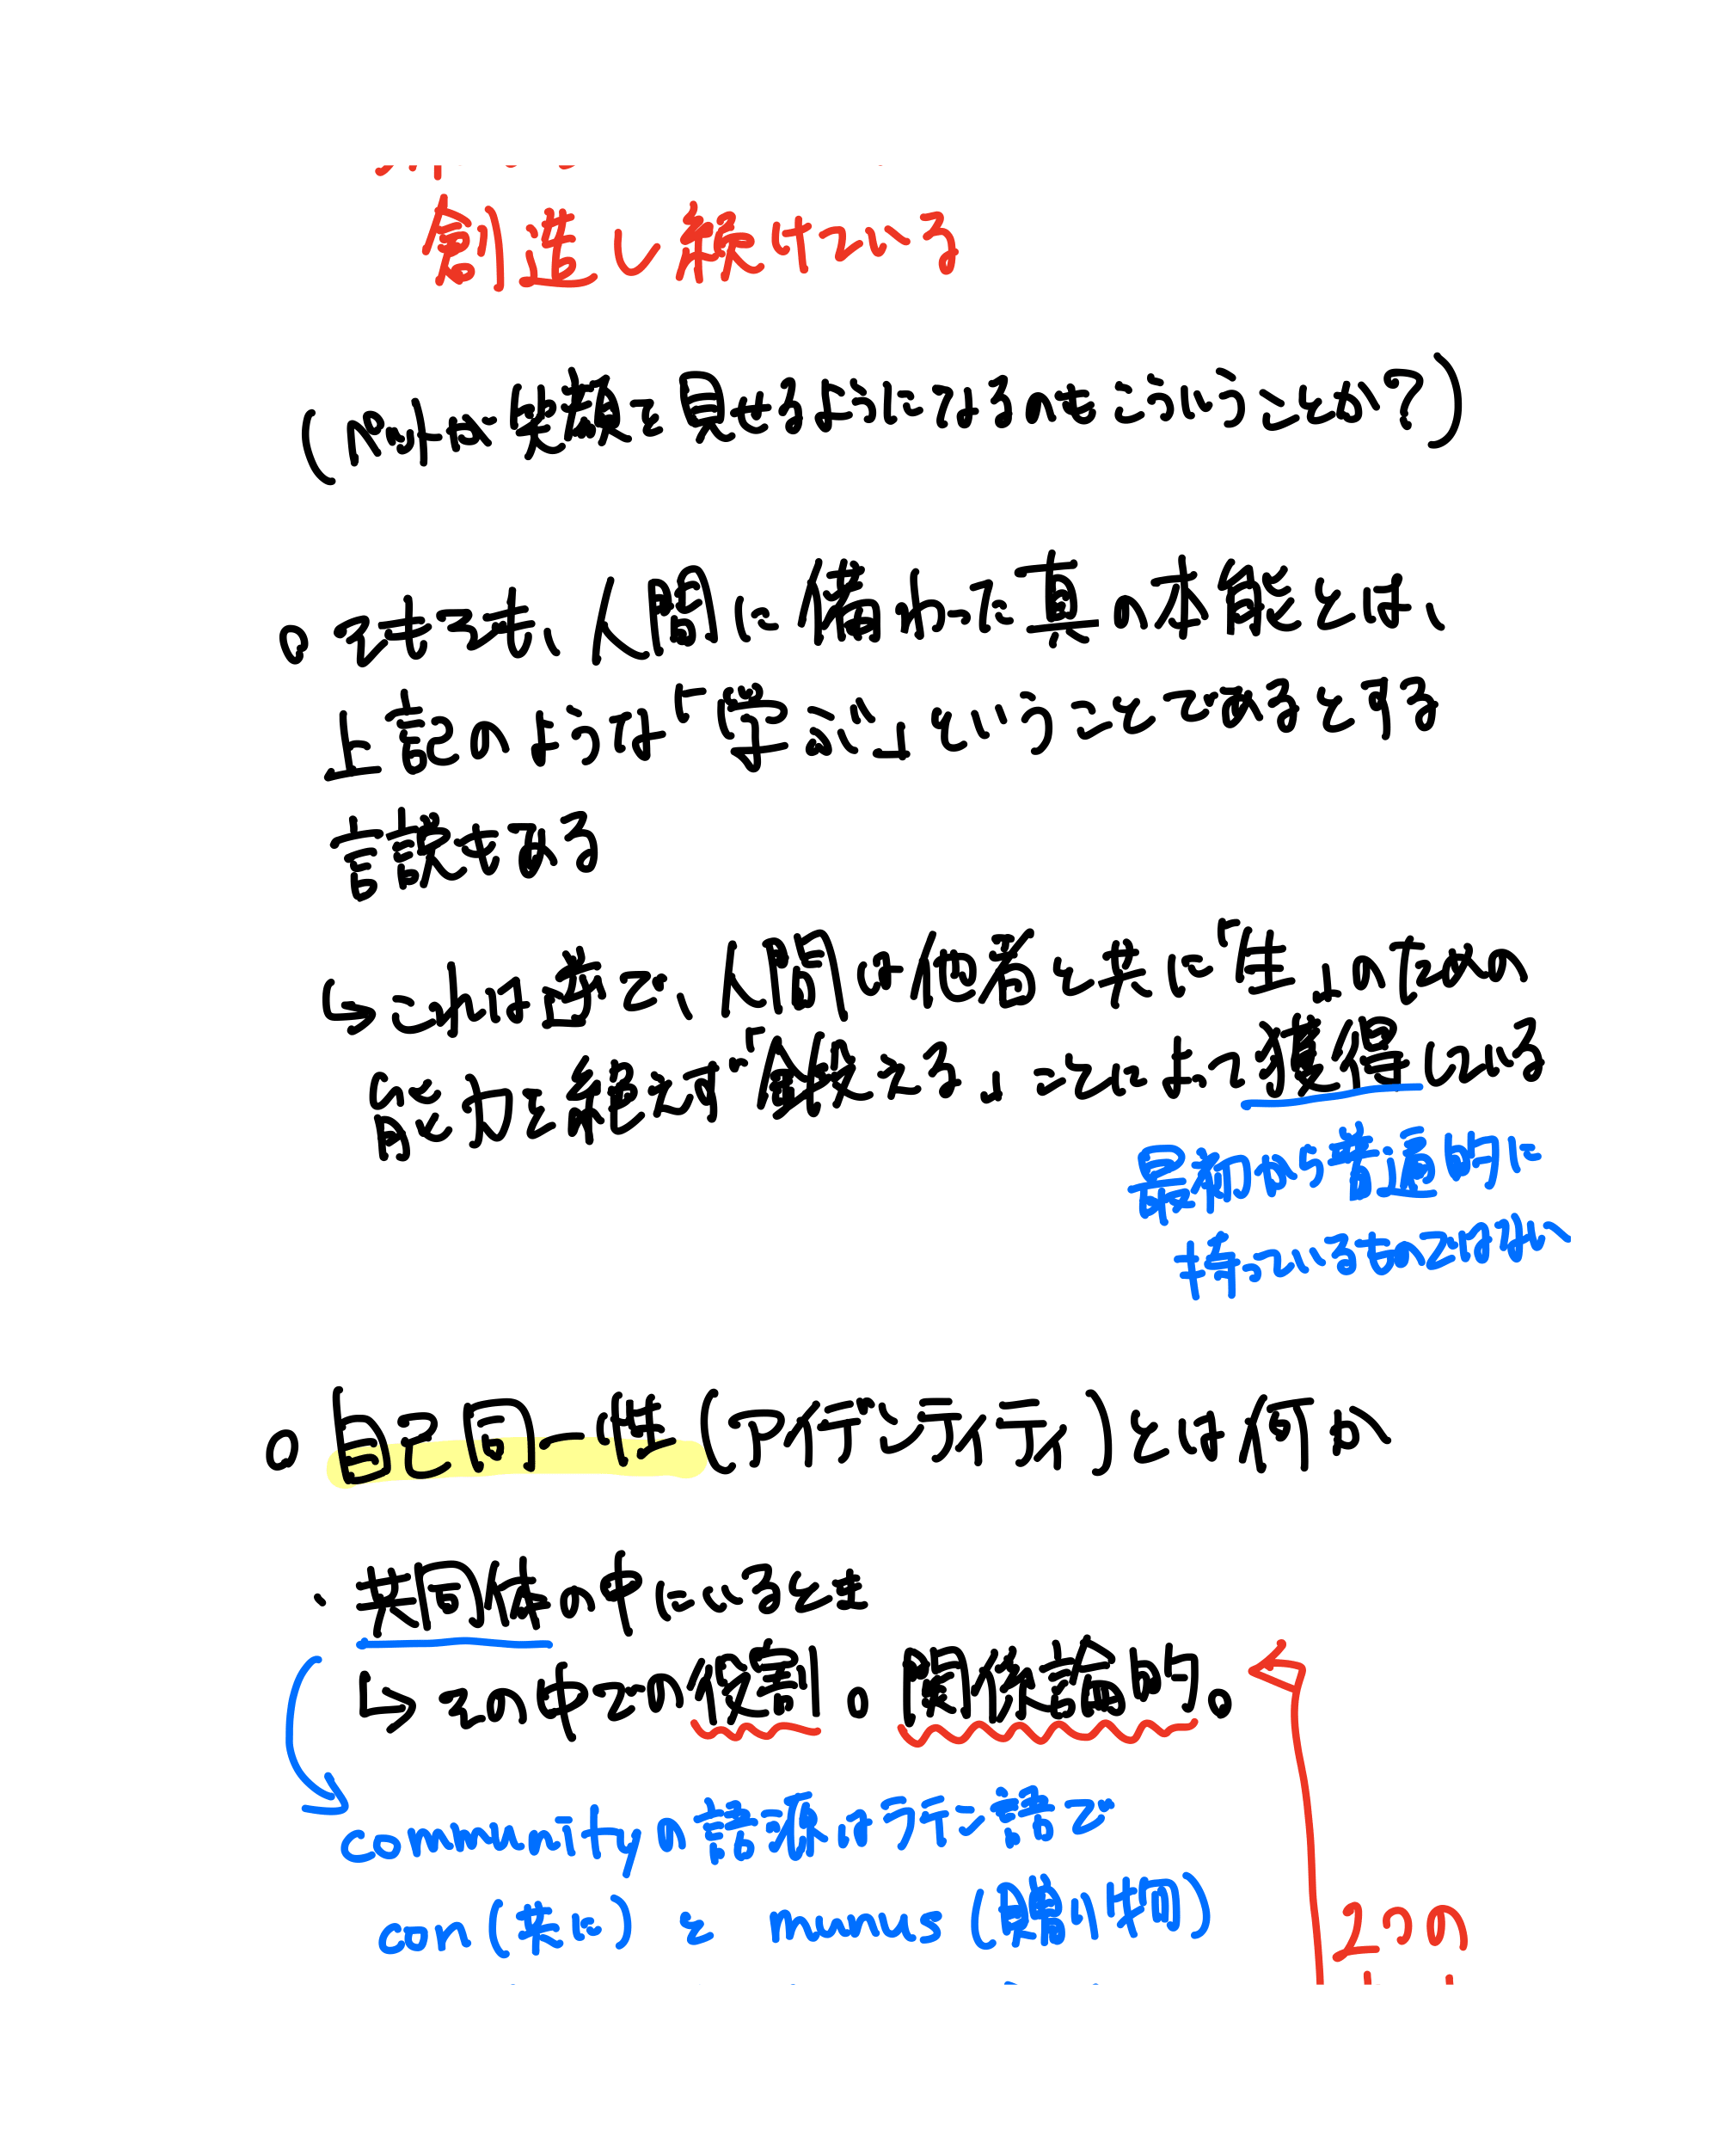 創造し続けている
(ペットが笑顔を見せるようになるのもこういうことか?)
。そもそも、人間に備わった真の本能とは、
上記のような「学ぶ」ということであるとする
言説もある
↳これは逆で、人間は他者と共に「生」のための
能力を絶えず「鍛える」ことによって獲得している
最初から普遍的に
持っているものではない
。自己同一性(アイデンティティ)とは何か
・共同体の中にいるとき
↳その中での役割。関係論的。
communityの語源はラテン語で
com(共に)と munus(贈り物)
2つの